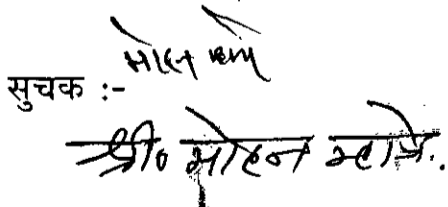 मोहन
सुचक :-
श्री० मोहन म्हात्रे..